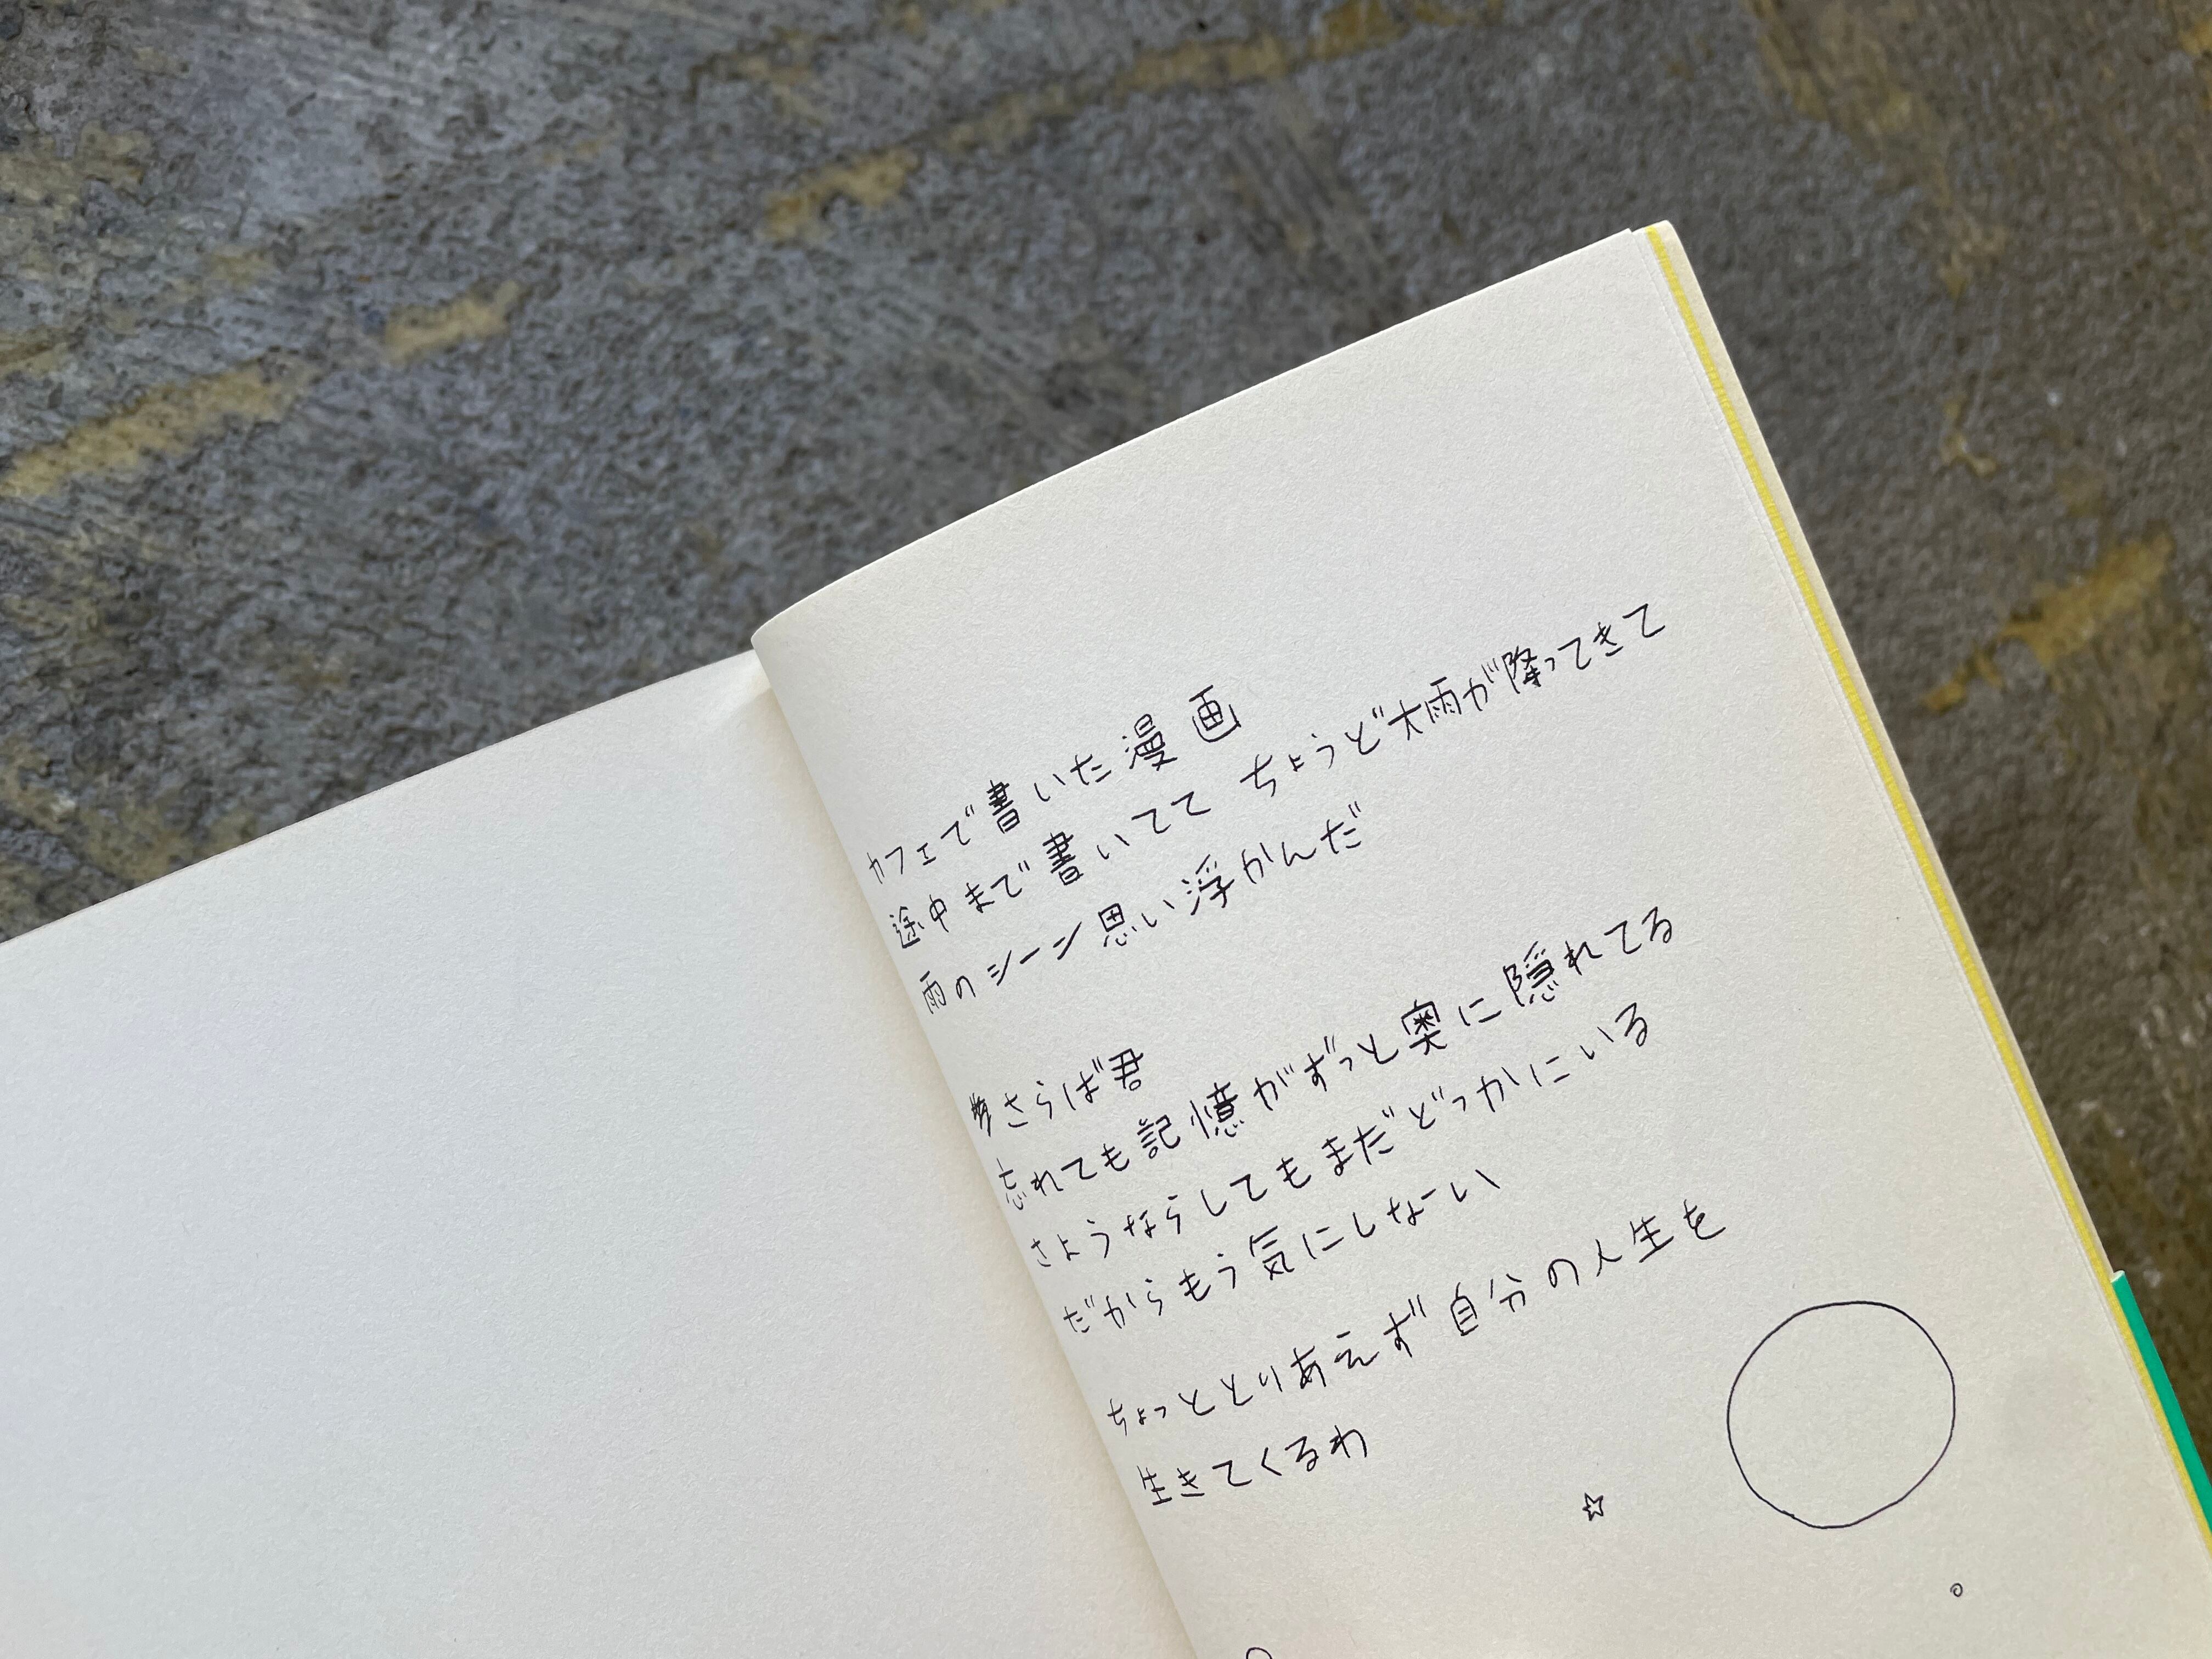 カフェで書いた漫画
途中まで書いてて ちょうど大雨が降ってきて
雨のシーン思い浮かんだ
さらば君
忘れても記憶がずっと奥に隠れてる
さようならしてもまだどっかにいる
だからもう気にしない
ちょっととりあえず自分の人生を
生きてくるわ